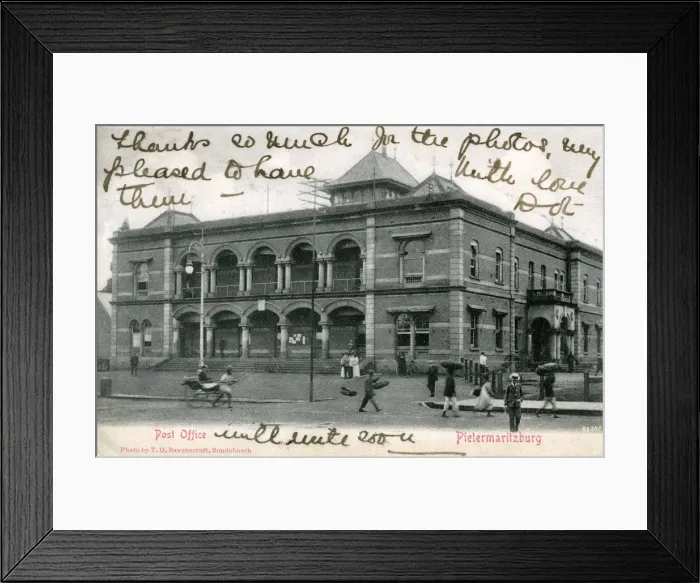 Thanks so much for the photos, very
pleased to have
them -
With love
Dot
Post Office
will write soon
Pietermaritzburg
Photo by T. D. Ravenscroft, Rondebosch